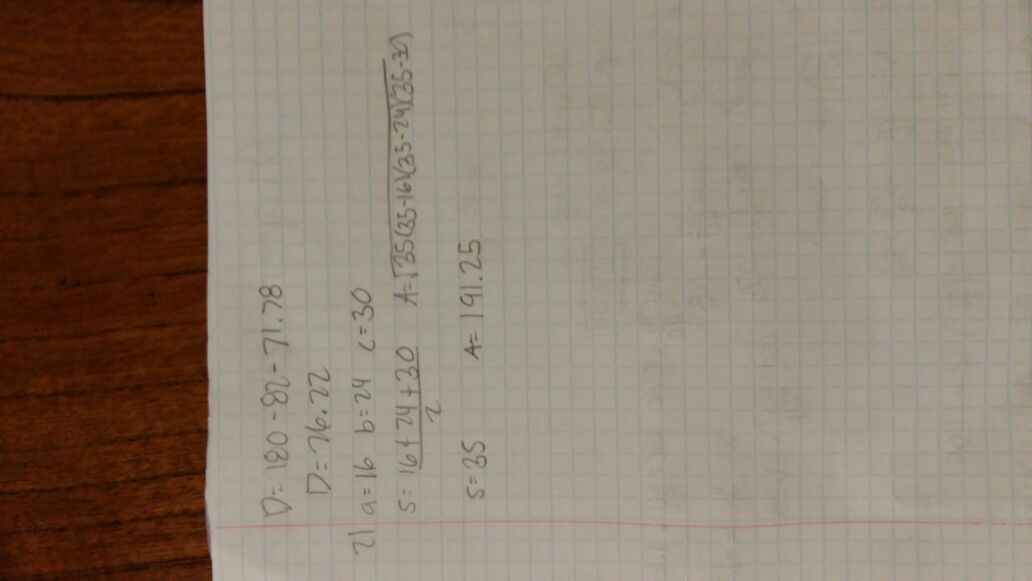 D = 180 - 82 - 71.78
D = 26.22
21 a = 16 b = 24 c = 30
s = 16 + 24 + 30 / 2 A = √35(35-16)(35-24)(35-30)
s = 35 A = 191.25